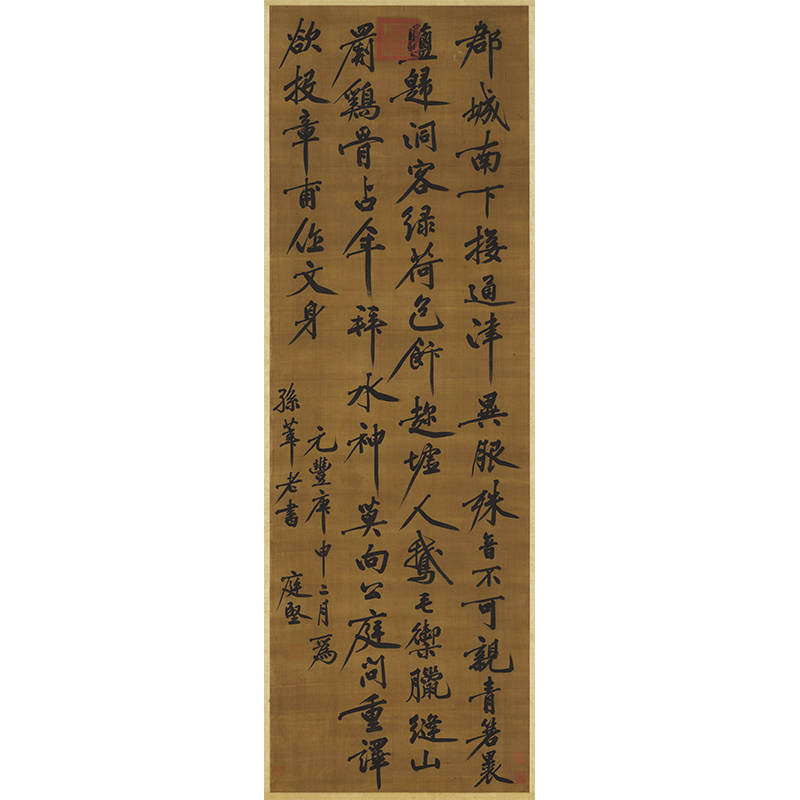 郡城南下接通津異服殊音不可親青箬裹
鹽歸洞客緑荷包飰趂墟人鵝毛禦臘縫山
罽鷄骨占年拜水神莫向公庭問重譯
欲投章甫作文身
元豐庚申二月為
孫莘老書 庭堅